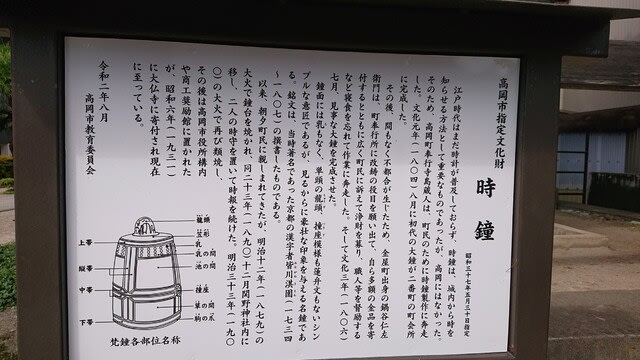 高岡市指定文化財
時鐘
昭和三十七年五月三十日指定
江戸時代はまだ時計が普及しておらず、時鐘は、城内から時を
知らせる方法として重要なものであったが、高岡にはなかった。
そのため、高岡町奉行寺島蔵人は、町民のために時鐘製作に奔走
した。文化元年(一八〇四)八月に初代の大鐘が二番町の町会所
に完成した。
その後、間もなく不都合が生じたため、金屋町出身の鍋谷仁左
衛門は、町奉行所に改鋳の役目を願い出て、自ら多額の金品を寄
付するとともに広く町民に訴えて浄財を募り、職人等を督励する
など寝食を忘れて作業に奔走した。そして文化三年(一八〇六)
七月、見事な大鐘を完成させた。
鐘面には乳もなく、単頭の龍頭、撞座模様も蓮弁文もないシン
プルな意匠であるが、見るからに豪壮な印象を与える名鐘であ
る。銘文は、当時著名であった京都の漢字者皆川淇園(一七三四
〜一八〇七)の撰書したものである。
以来、朝夕町民に親しまれてきたが、明治十二年(一八七九)の
大火で鐘台を焼かれ、同二十三年(一八九〇)十二月関野神社内に
移し、二人の時守を置いて時報を続けた。明治三十三年(一九〇
〇)の大火で再び類焼し、
その後は高岡市役所構内
や商工奨励館に置かれた
が、昭和六年(一九三一)
に大仏寺に寄付され現在
に至っている。
令和二年八月
高岡市教育委員会
龍頭
笠形
乳の間
乳
池の間
撞座
草の間
駒の爪
上帯
縦帯
中帯
下帯
梵鐘各部位名称